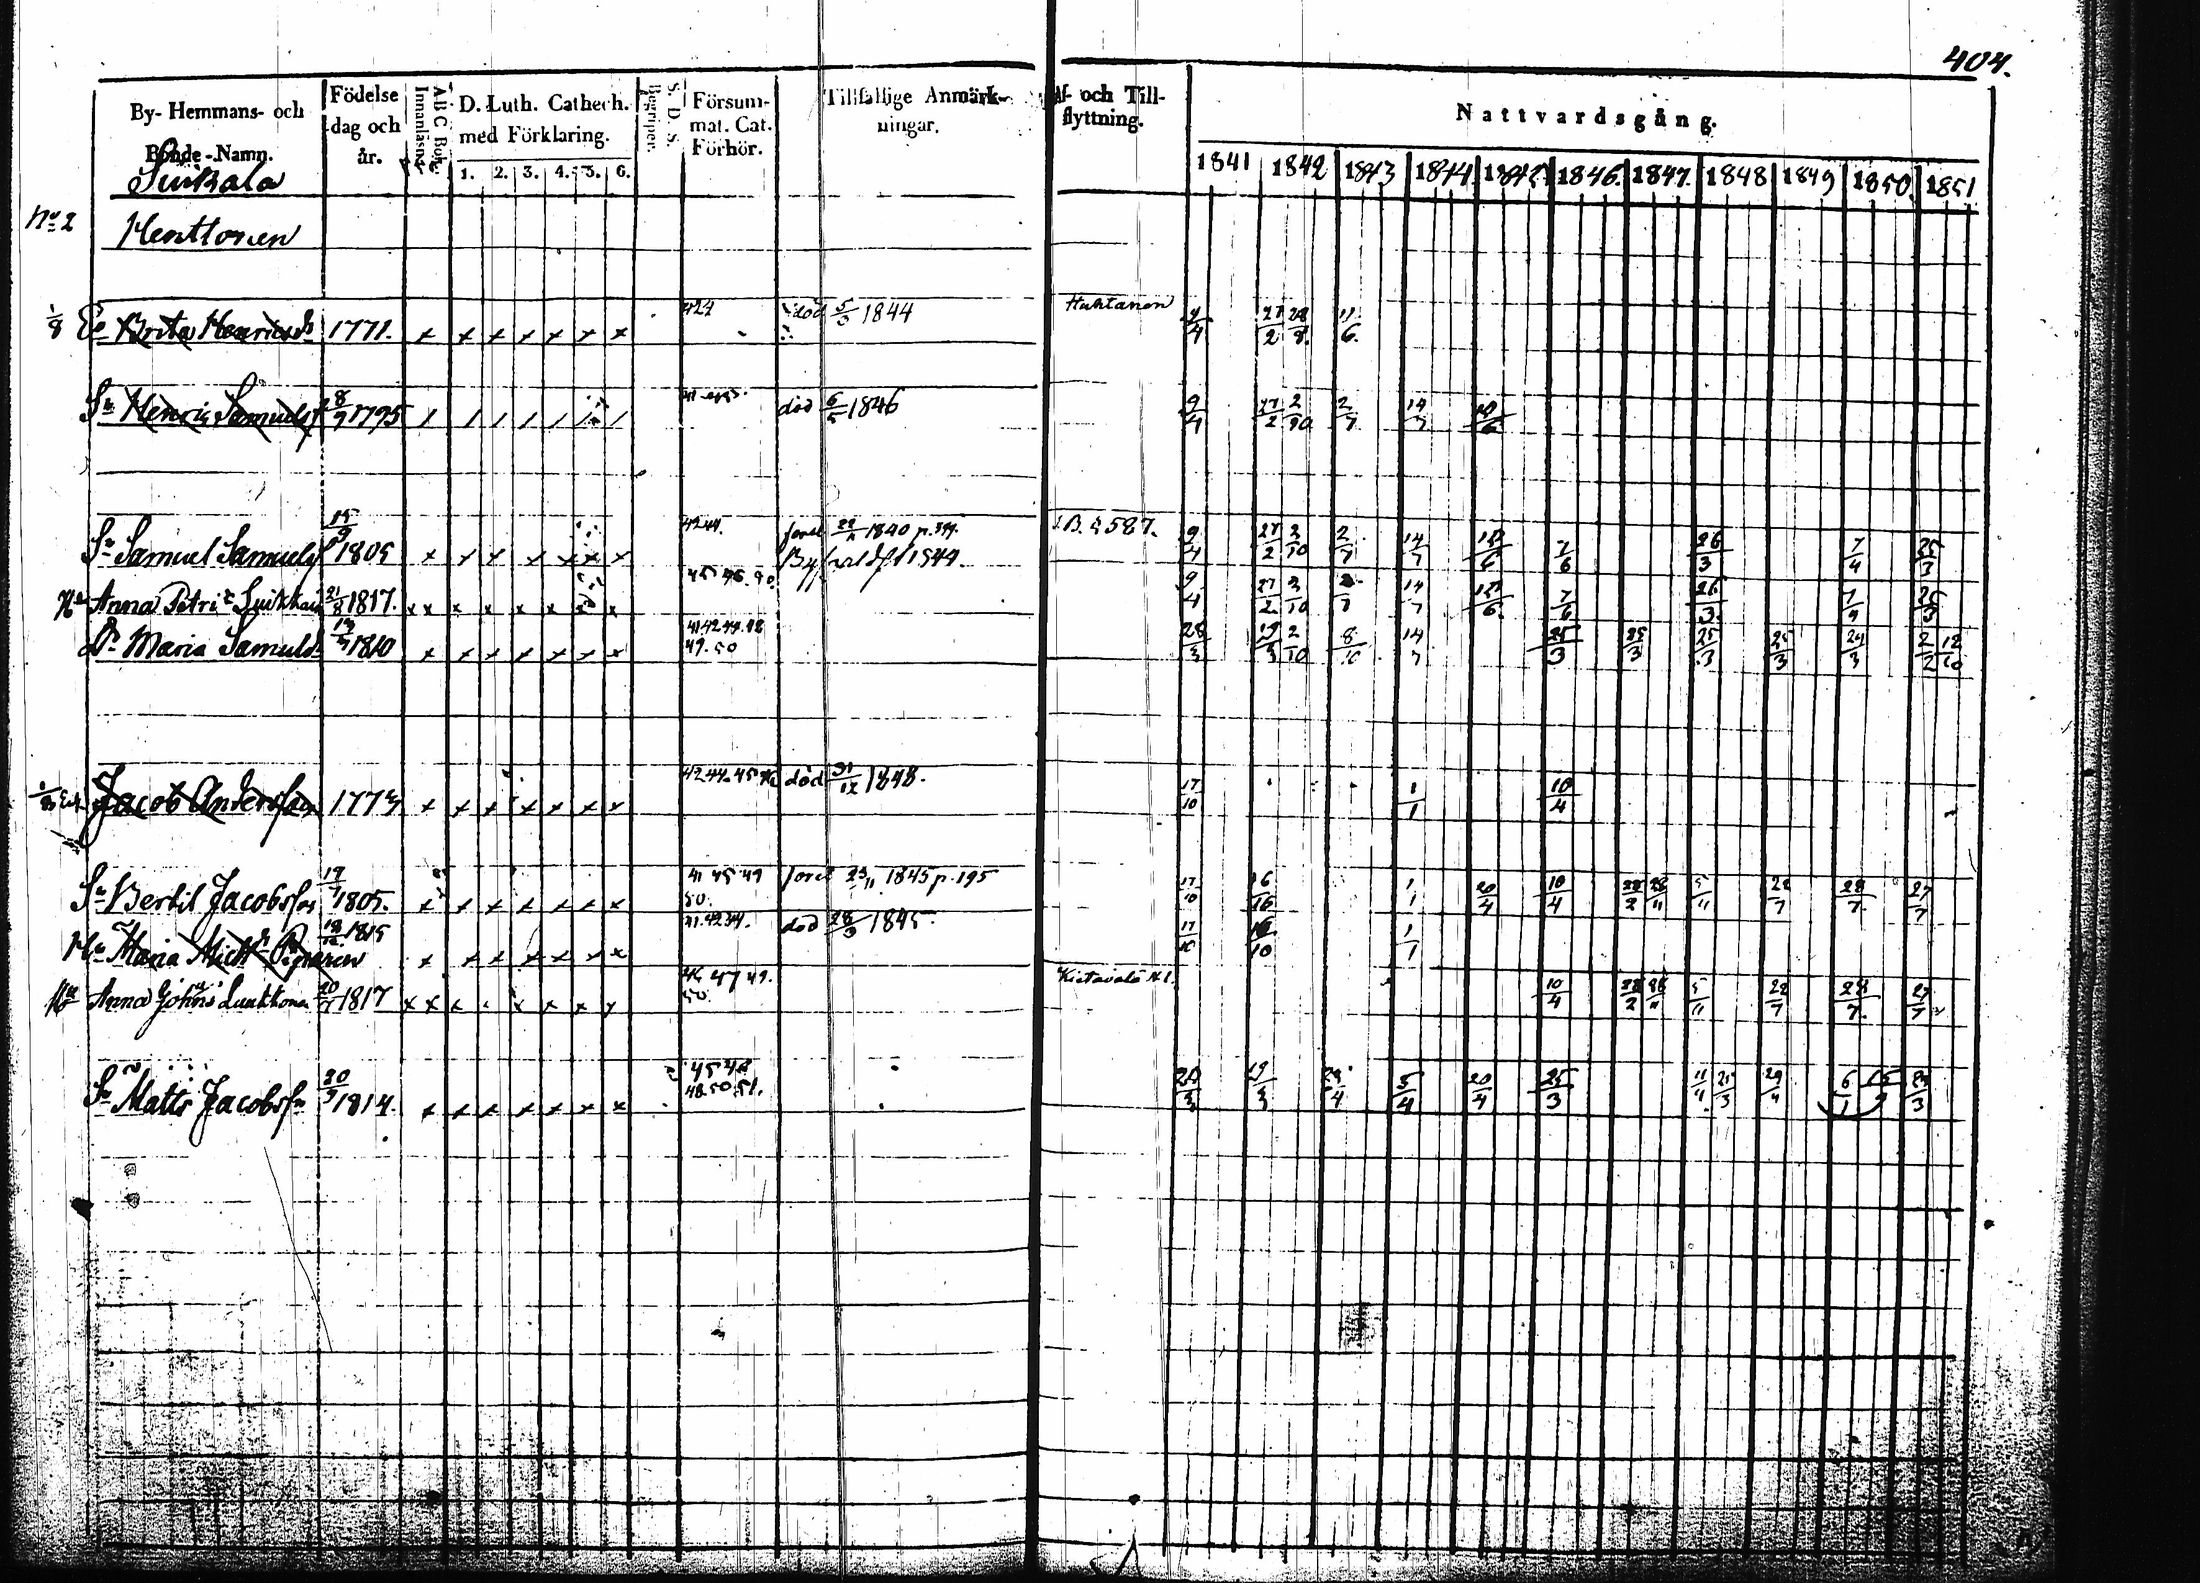 404.
By- Hemmans- och Bonde-Namn. Födelse dag och år. Innanläsn. A.B.C. Bok. D. Luth. Cathech. med Förklaring. 1. 2. 3. 4. 5. 6. Begriper. S. D. S. Försum- mat. Cat. Förhör. Tillfällige Anmärk- ningar. Af- och Till- flyttning. Nattvardsgång.
1841 1842 1843 1844 1845 1846. 1847. 1848 1849 1850. 1851.
Suikala
No 2 Henttonen
1/8 Brita Henricsdr 1771. x x x x x x x 424 död 5/3 1844 Huhtanen 9/4 27/2 28/8 11/6
Sn Henric Samuelsf 8/9 1795 / / / / / / / död 6/5 1846 9/4 27/2 2/10 2/7 14/7
Sn Samuel Samuelsf 1805 x x x x x x x 4244. 1840 p. 1844. I.B. p 587. 9/4 27/2 2/10 2/7 14/7 7/6 26/3 7/4 25/3
Hu Anna Petri Suikkari 21/8 1817. x x x x x x x x 45 46. 50 9/4 27/2 2/10 2/7 14/7 7/6 26/3 7/4 25/3
Dr Maria Samuelsdr 1810 x x x x x x x 41 42 44. 48 49. 50 28/3 19/3 2/10 8/10 14/7 25/3 25/3 25/3 25/3 24/3 2/2 12/10
Jacob Andersson 1773 x x x x x x x 42 44. 45 46 död 31/12 1848. 17/10 1/1 10/4
Sn Bertil Jacobsson 1805. x x x x x x x 41 45 49 50. 23/11 1845 p. 195 17/10 16/10 1/1 20/4 10/4 28/2 28/11 5/11 22/7 28/7 27/7
Hu Maria Mich. 1815 x x x x x x x 41. 42 44. död 28/3 1845. 17/10 16/10 1/1
Hu Anna Johns Luukkonen 20/7 1817 x x x x x x x x 46 47 49. 50. Kietävälä N 1. 10/4 28/2 28/11 5/11 22/7 28/7 27/7
Sn Matts Jacobsn 30/9 1814. x x x x x x x 45 46 48. 50. 51. 19/3 5/4 20/4 25/3 11/4 25/3 6/1